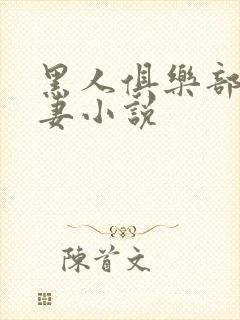 黑人俱樂部
妻小說
陳首文